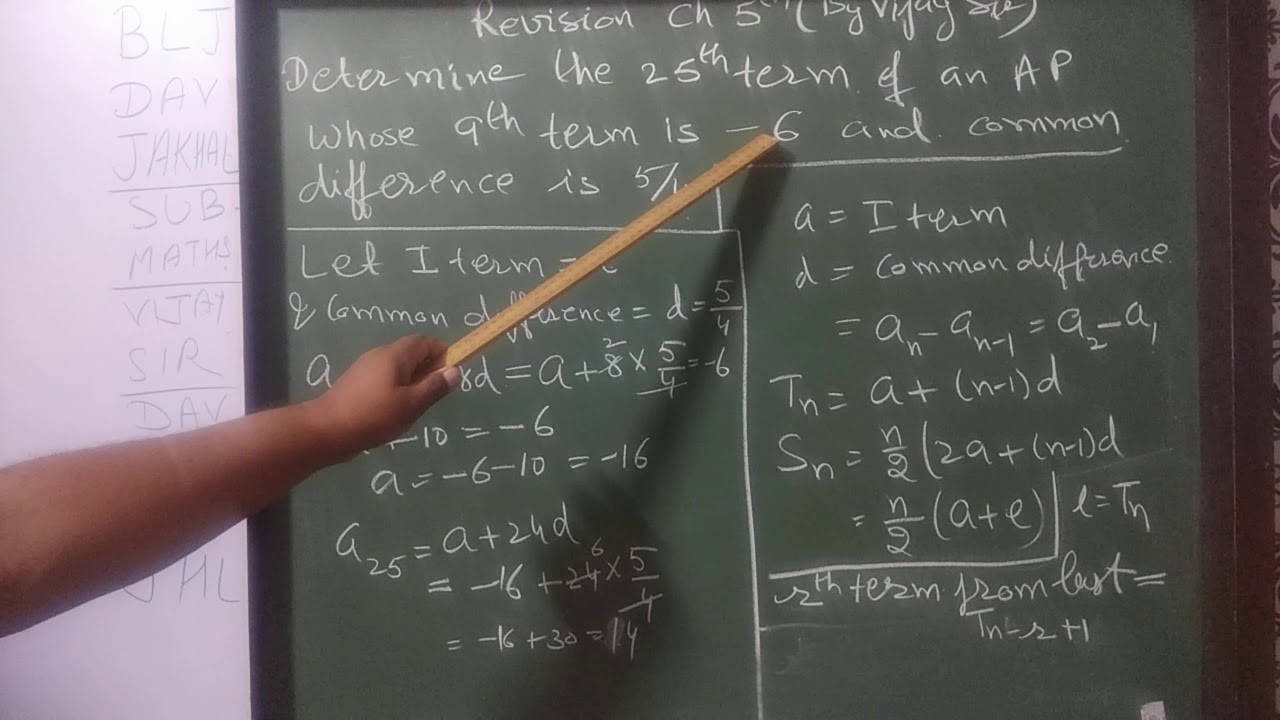 BLJ
DAV
JAKHAL
SUB-
MATHS
VIJAY
SIR
DAV
JHL
Revision Ch 5th (By Vijay Sir)
Determine the 25th term of an AP
whose 9th term is -6 and common
difference is 5/
Let I term =
& Common difference = d = 5/4
a 8d = a + 8 2 × 5/4 = -6
+10 = -6
a = -6-10 = -16
a25 = a + 24d
= -16 + 24 6 × 5/4
= -16 + 30 = 14
a = I term
d = Common difference
= an - an-1 = a2 - a1
Tn = a + (n-1)d
Sn = n/2 (2a + (n-1)d
= n/2 (a+l) l = Tn
rth term from last =
Tn-r+1